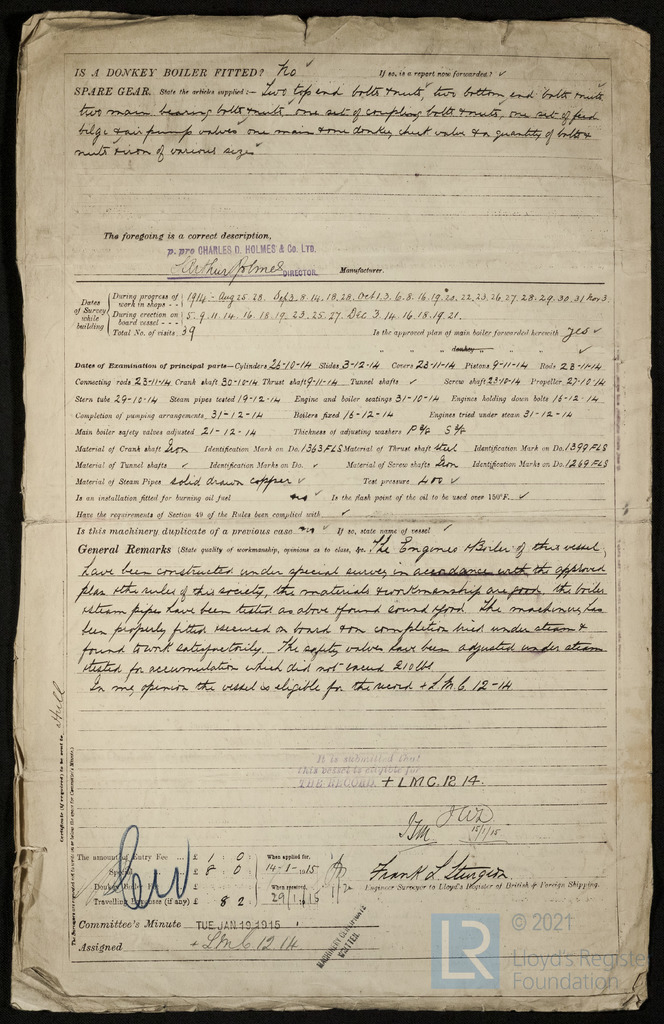 IS A DONKEY BOILER FITTED? No If so, is a report now forwarded? ✓
SPARE GEAR. State the articles supplied:— Two top end bolts & nuts, two bottom end bolts & nuts
two main bearing bolts & nuts, one set of coupling bolts & nuts, one set of feed
bilge & air pump valves one main & one donkey check valve & a quantity of bolts &
nuts & iron of various sizes
The foregoing is a correct description,
p. pro CHARLES D. HOLMES & Co. LTD.
Arthur Holmes DIRECTOR. Manufacturer.
Dates of Survey while building
During progress of work in shops - - 1914:- Aug 25. 28. Sep 3. 8. 14. 18. 28. Oct 1. 3. 6. 8. 16. 19. 20. 22. 23. 26. 27. 28. 29. 30. 31 Nov 3.
During erection on board vessel - - - 5. 9. 11. 14. 16. 18. 19. 23. 25. 27. Dec 3. 14. 16. 18. 19. 21.
Total No. of visits 39 Is the approved plan of main boiler forwarded herewith yes ✓
" " donkey " " " ✓
Dates of Examination of principal parts—Cylinders 26-10-14 Slides 3-12-14 Covers 23-11-14 Pistons 9-11-14 Rods 23-11-14
Connecting rods 23-11-14 Crank shaft 30-10-14 Thrust shaft 9-11-14 Tunnel shafts ✓ Screw shaft 23-10-14 Propeller 27-10-14
Stern tube 29-10-14 Steam pipes tested 19-12-14 Engine and boiler seatings 31-10-14 Engines holding down bolts 16-12-14
Completion of pumping arrangements 31-12-14 Boilers fixed 16-12-14 Engines tried under steam 31-12-14
Main boiler safety valves adjusted 21-12-14 Thickness of adjusting washers P S
Material of Crank shaft Iron Identification Mark on Do. 1363 FLS Material of Thrust shaft steel Identification Mark on Do. 1399 FLS
Material of Tunnel shafts ✓ Identification Marks on Do. ✓ Material of Screw shafts Iron Identification Marks on Do. 1269 FLS
Material of Steam Pipes solid drawn copper ✓ Test pressure 400 ✓
Is an installation fitted for burning oil fuel no ✓ Is the flash point of the oil to be used over 150°F. ✓
Have the requirements of Section 49 of the Rules been complied with ✓
Is this machinery duplicate of a previous case no ✓ If so, state name of vessel ✓
General Remarks (State quality of workmanship, opinions as to class, &c. The Engines & Boiler of this vessel,
have been constructed under special survey in accordance with the approved
plan & the rules of this society, the materials & workmanship are good, the boiler
& steam pipes have been tested as above & found sound & good. The machinery has
been properly fitted & secured on board & on completion tried under steam &
found to work satisfactorily. The safety valves have been adjusted under steam
& tested for accumulation which did not exceed 210 lbs
In my opinion the vessel is eligible for the record + L.M.C. 12-14
Hull
It is submitted that
this vessel is eligible for
THE RECORD. + LMC. 12 14.
JWD
15/1/15
The amount of Entry Fee ... £ 1 : 0 When applied for,
Special £ 8 : 0 14-1-1915
Donkey Boiler Fee £ When received,
Travelling Expenses (if any) £ : 8 2 29/1/1915
Frank L Sturgeon
Engineer Surveyor to Lloyd's Register of British & Foreign Shipping.
Committee's Minute TUE. JAN. 19. 1915
Assigned + L.M.C. 12 14
MACHINERY CERTIFICATE
WRITTEN
LR
© 2021
Lloyd's Register
Foundation